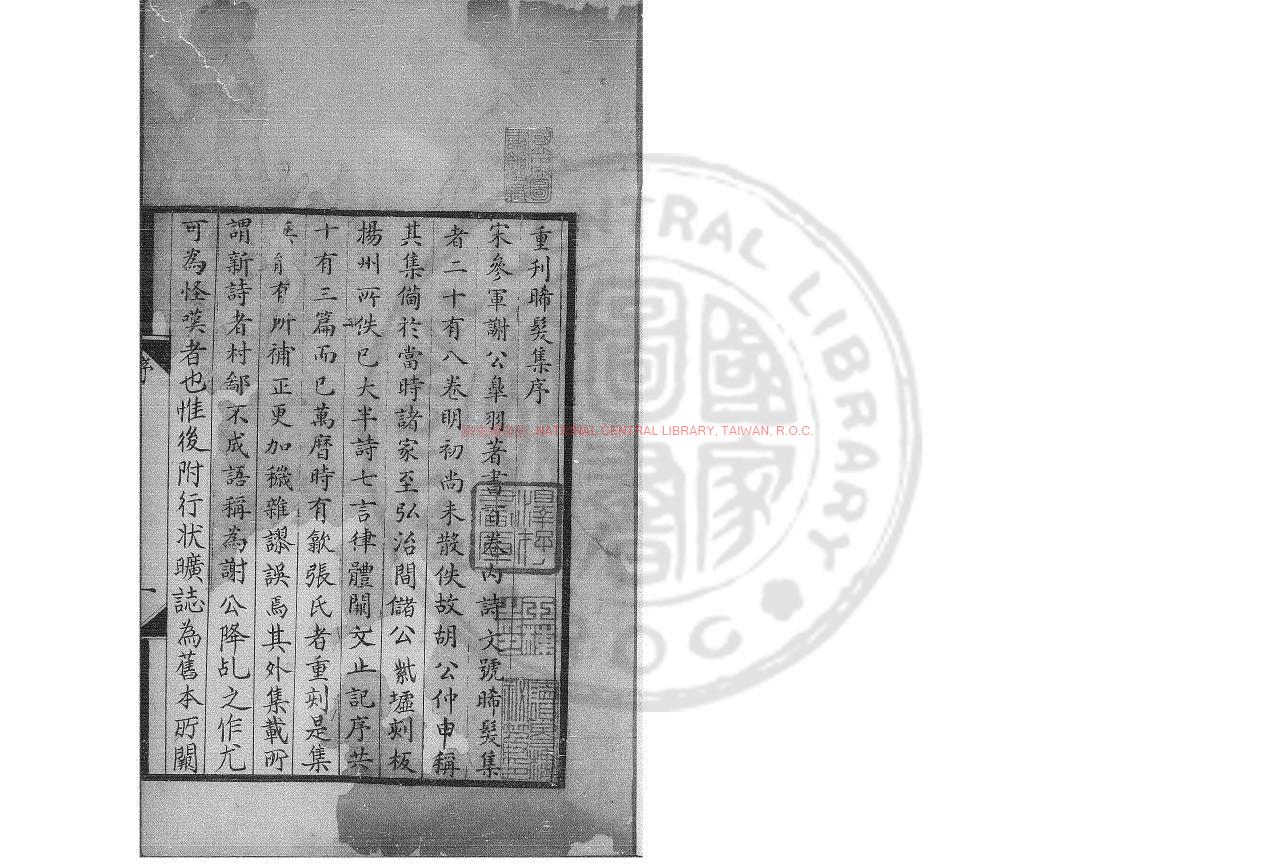 重刊晞髮集序
宋參軍謝公皋羽著書百卷內詩文號晞髮集
者二十有八卷明初尚未散佚故胡公仲申稱
其集備於當時諸家至弘治間儲公紫墟刻板
揚州所佚已大半詩七言律體闕文止記序共
十有三篇而已萬曆時有歙張氏者重刻是集
能有所補正更加穢雜謬誤焉其外集載所
謂新詩者村鄙不成語稱為謝公降乩之作尤
可為怪嘆者也惟後附行狀曠誌為舊本所闕
序
一
NATIONAL CENTRAL LIBRARY, TAIWAN, R.O.C.
CENTRAL LIBRARY
ROC